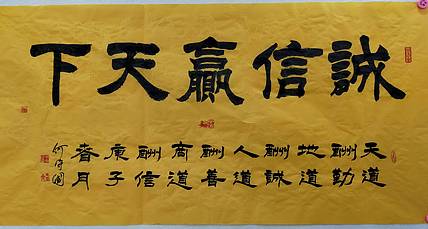 誠信贏天下
天道
酬勤
地道
酬誠
人道
酬善
商道
酬信
庚子
春月
何守國